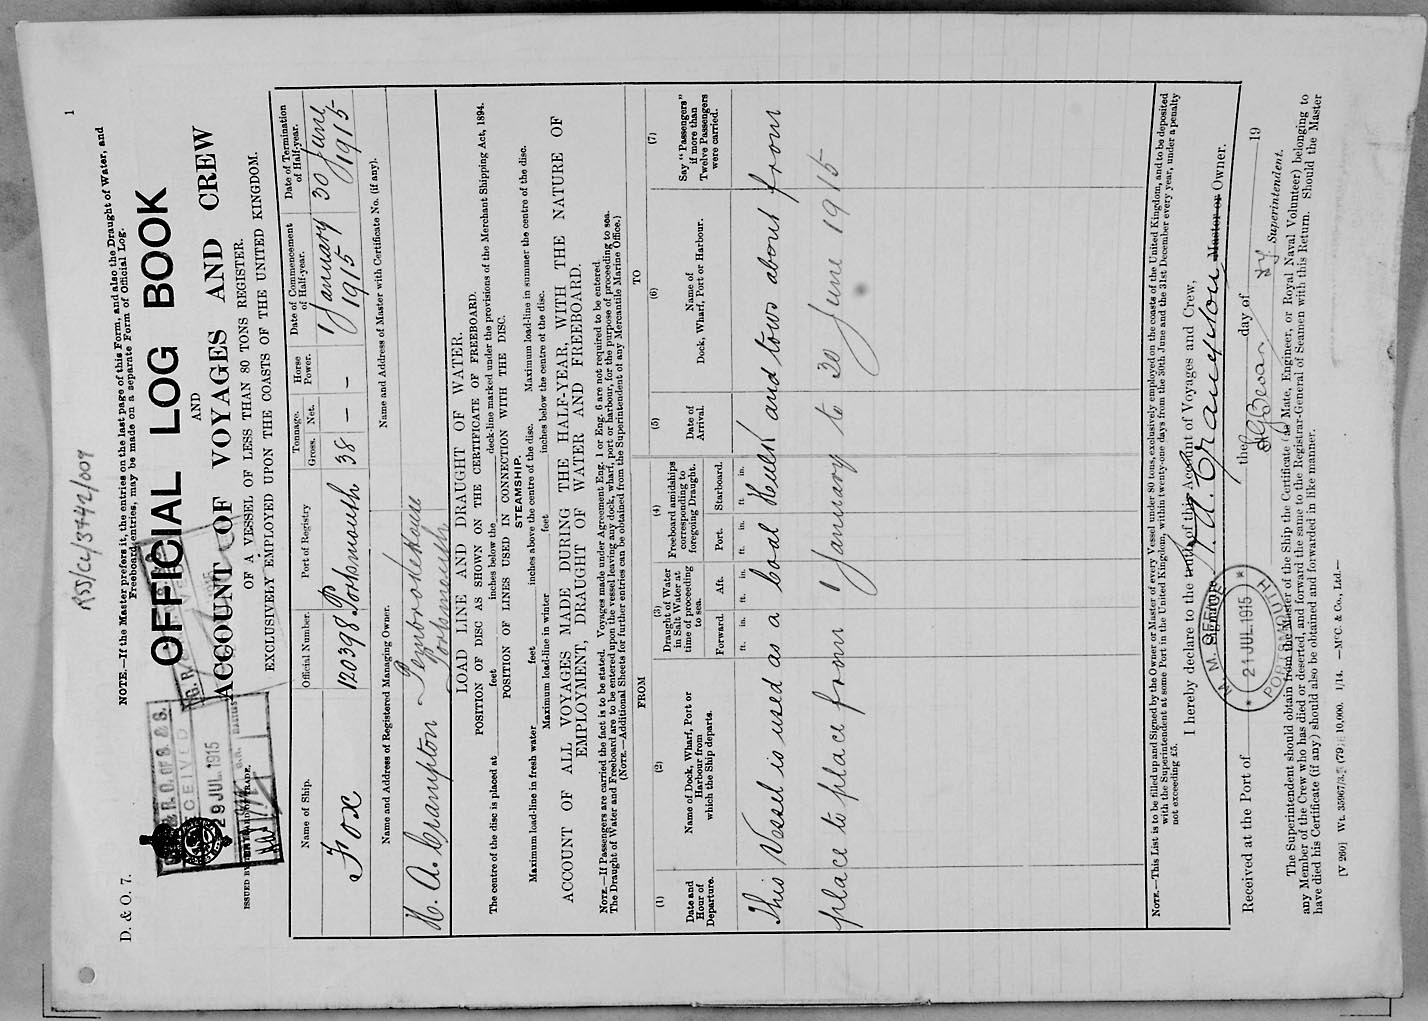 RSS/CL/5742/009
1
D. & O. 7.
NOTE.—If the Master prefers it, the entries on the last page of this Form, and also the Draught of Water, and
Freeboard entries, may be made on a separate Form of Official Log.
OFFICIAL LOG BOOK
AND
ACCOUNT OF VOYAGES AND CREW
OF A VESSEL OF LESS THAN 80 TONS REGISTER.
EXCLUSIVELY EMPLOYED UPON THE COASTS OF THE UNITED KINGDOM.
R.O. OF S. & S.
RECEIVED
29 JUL 1915
ISSUED BY THE BOARD OF TRADE.
Name of Ship. Official Number. Port of Registry Tonnage. Gross. Net. Horse Power. Date of Commencement of Half-year. Date of Termination of Half-year.
Fox 120398 Portsmouth 38 — — 1 January 1915 30 June 1915
Name and Address of Registered Managing Owner. Name and Address of Master with Certificate No. (if any).
A. Crampton Pembroke House
Portsmouth
LOAD LINE AND DRAUGHT OF WATER.
POSITION OF DISC AS SHOWN ON THE CERTIFICATE OF FREEBOARD.
The centre of the disc is placed at feet inches below the deck-line marked under the provisions of the Merchant Shipping Act, 1894.
POSITION OF LINES USED IN CONNECTION WITH THE DISC.
STEAMSHIP.
Maximum load-line in fresh water feet inches above the centre of the disc. Maximum load-line in summer the centre of the disc.
Maximum load-line in winter feet inches below the centre of the disc.
ACCOUNT OF ALL VOYAGES MADE DURING THE HALF-YEAR, WITH THE NATURE OF
EMPLOYMENT, DRAUGHT OF WATER AND FREEBOARD.
NOTE.—If Passengers are carried the fact is to be stated. Voyages made under Agreement Eng. 1 or Eng. 6 are not required to be entered.
The Draught of Water and Freeboard are to be entered upon the vessel leaving any dock, wharf, port or harbour, for the purpose of proceeding to sea.
(NOTE.—Additional Sheets for further entries can be obtained from the Superintendent of any Mercantile Marine Office.)
FROM TO
(1) (2) (3) (4) (5) (6) (7)
Date and Hour of Departure. Name of Dock, Wharf, Port or Harbour from which the Ship departs. Draught of Water in Salt Water at time of proceeding to sea. Freeboard amidships corresponding to foregoing Draught. Date of Arrival. Name of Dock, Wharf, Port or Harbour. Say "Passengers" if more than Twelve Passengers were carried.
Forward. Aft. Port. Starboard.
ft. in. ft. in. ft. in. ft. in.
This Vessel is used as a Coal Hulk and tows about from
place to place from 1 January to 30 June 1915
NOTE.—This List is to be filled up and Signed by the Owner or Master of every Vessel under 80 tons, exclusively employed on the coasts of the United Kingdom, and to be deposited
with the Superintendent at some Port in the United Kingdom, within twenty-one days from the 30th June and the 31st December every year, under a penalty
not exceeding £5.
I hereby declare to the truth of this Account of Voyages and Crew,
Signature A. Crampton Master or Owner.
M. M. OFFICE
21 JUL 1915
PORTSMOUTH
Received at the Port of the day of 19
Superintendent.
The Superintendent should obtain from the Master of the Ship the Certificate (as Mate, Engineer, or Royal Naval Volunteer) belonging to
any Member of the Crew who has died or deserted, and forward the same to the Registrar-General of Seamen with this Return. Should the Master
have died his Certificate (if any) should also be obtained and forwarded in like manner.
[V 260] 10,000. 1/14. —McC. & Co., Ltd.—